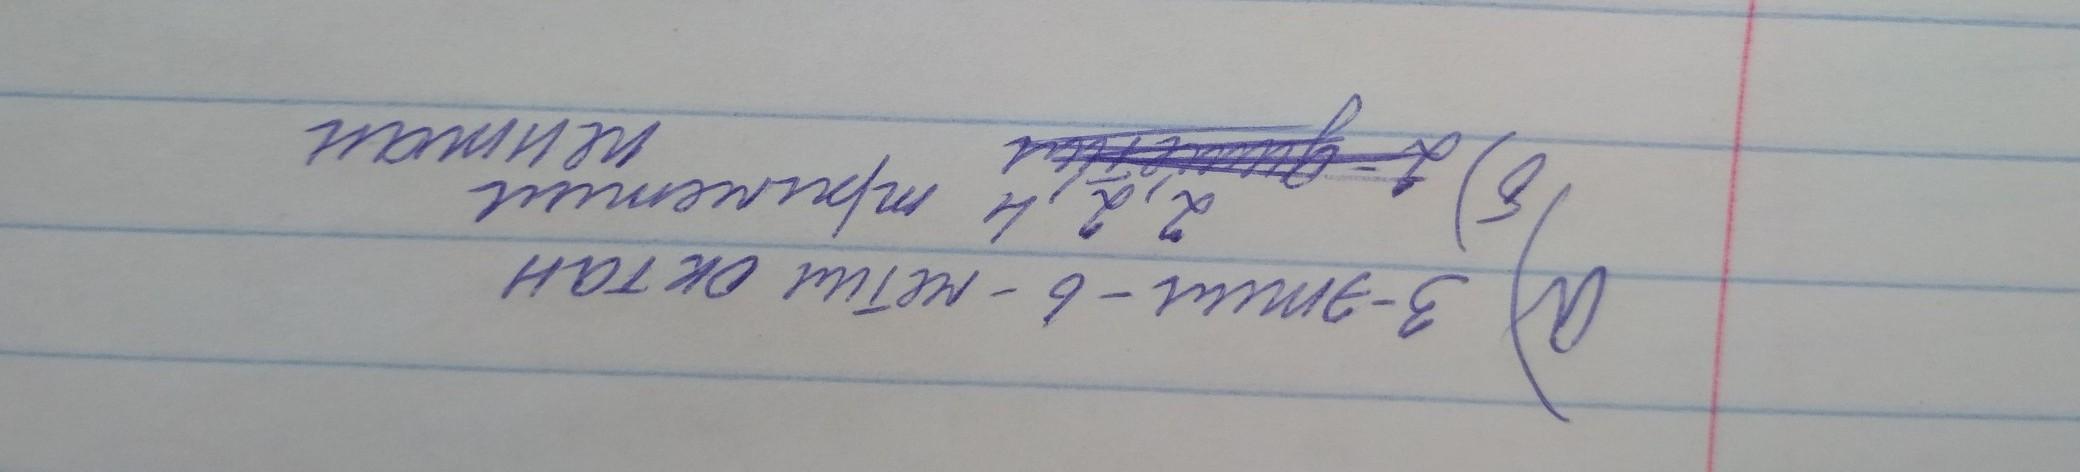 а) 3-этил-6-метил октан
б) 2,2,4 триметил
пентан